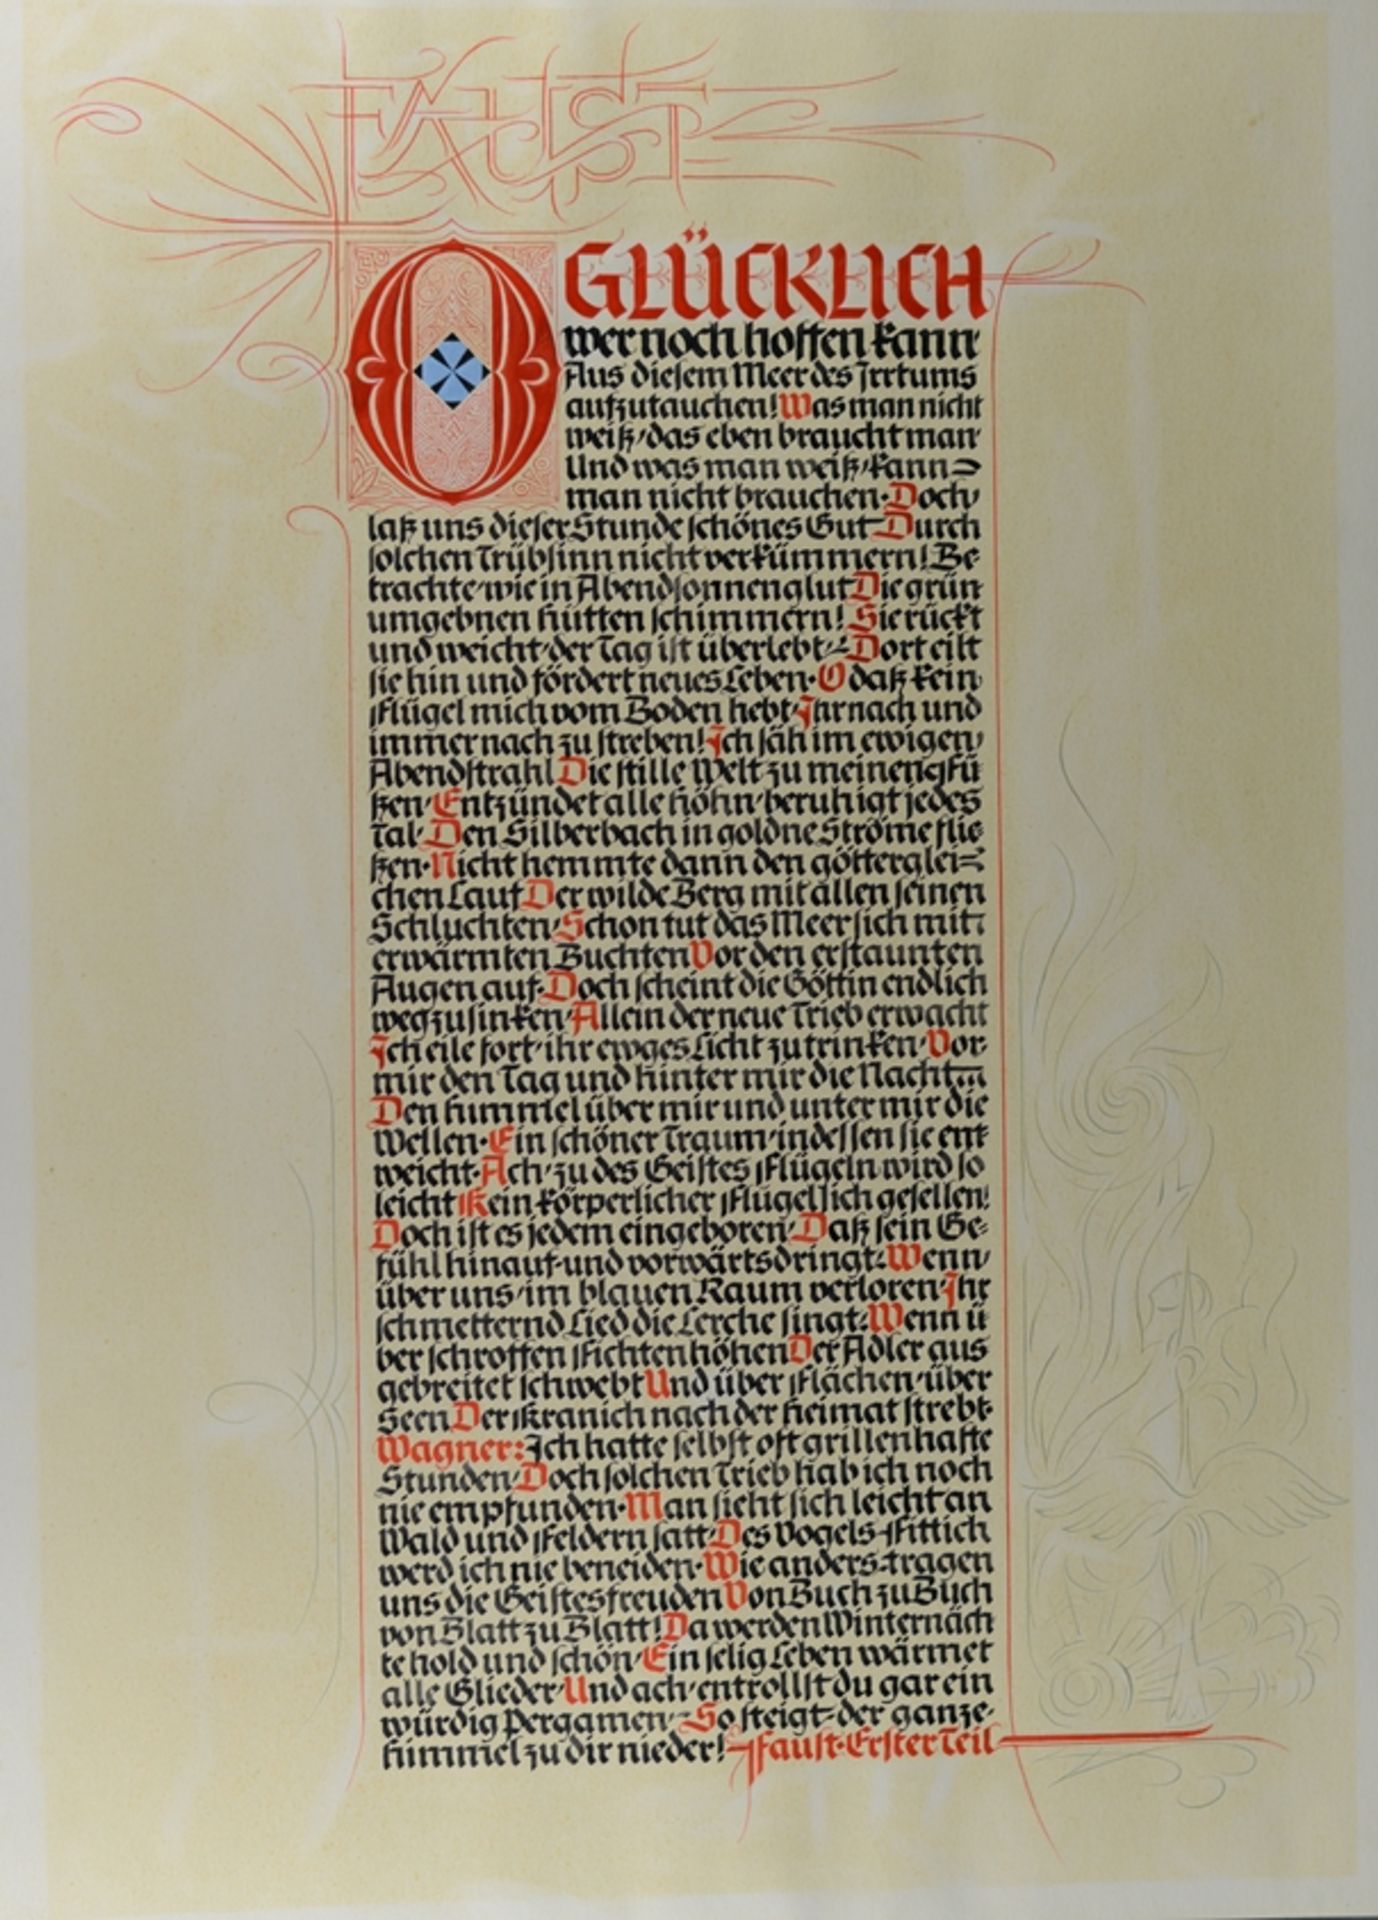 FAUST
O GLÜCKLICH
wer noch hoffen kann
Aus diesem Meer des Irrtums
aufzutauchen! Was man nicht
weiß, das eben braucht man
Und was man weiß, kann
man nicht brauchen. Doch,
laß uns dieser Stunde schönes Gut Durch
solchen Trübsinn nicht verkümmern! Be-
trachte, wie in Abendsonnenglut Die grün
umgebnen Hütten schimmern! Sie rückt
und weicht, der Tag ist überlebt, Dort eilt
sie hin und fördert neues Leben. O daß kein
Flügel mich vom Boden hebt, Ihr nach und
immer nach zu streben! Ich säh im ewigen
Abendstrahl Die stille Welt zu meinen Fü
ßen, Entzündet alle Höhn, beruhigt jedes
Tal, Den Silberbach in goldne Ströme flie-
ßen. Nicht hemmte dann den götterglei=
chen Lauf Der wilde Berg mit allen seinen
Schluchten, Schon tut das Meer sich mit
erwärmten Buchten Vor den erstaunten
Augen auf. Doch scheint die Göttin endlich
wegzusinken, Allein der neue Trieb erwacht
Ich eile fort, ihr ewges Licht zu trinken, Vor
mir den Tag und hinter mir die Nacht
Den Himmel über mir und unter mir die
Wellen. Ein schöner Traum, indessen sie ent
weicht. Ach, zu des Geistes Flügeln wird so
leicht Kein körperlicher Flügel sich gesellen!
Doch ist es jedem eingeboren, Daß sein Ge-
fühl hinauf und vorwärts dringt, Wenn,
über uns, im blauen Raum verloren, Ihr
schmetternd Lied die Lerche singt, Wenn ü
ber schroffen Fichtenhöhen Der Adler aus
gebreitet schwebt Und über Flächen, über
Seen Der Kranich nach der Heimat strebt.
Wagner: Ich hatte selbst oft grillenhafte
Stunden, Doch solchen Trieb hab ich noch
nie empfunden. Man sieht sich leicht an
Wald und Feldern satt, Des Vogels Fittich
werd ich nie beneiden. Wie anders tragen
uns die Geistesfreuden Von Buch zu Buch
von Blatt zu Blatt! Da werden Winternäch
te hold und schön, Ein selig Leben wärmet
alle Glieder, Und ach, entrollst du gar ein
würdig Pergamen, So steigt der ganze
Himmel zu dir nieder! Faust. Erster Teil